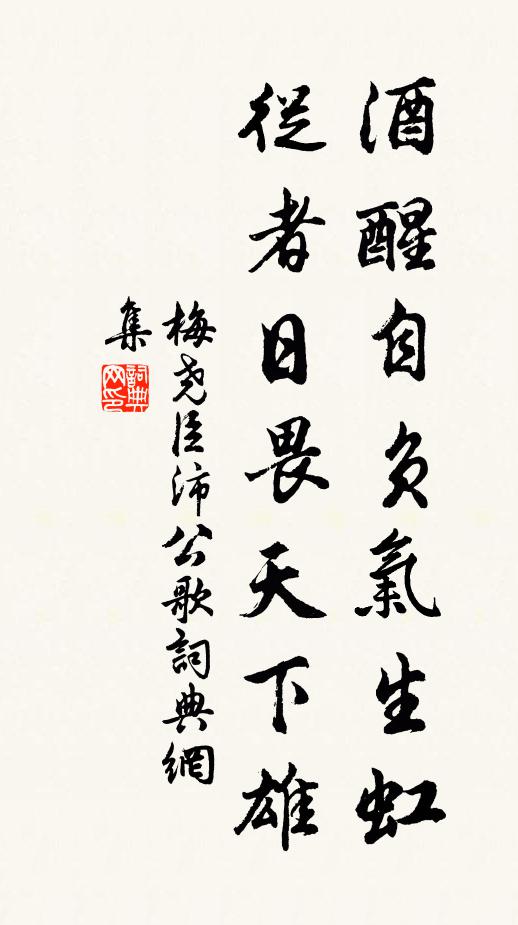 酒醒自負氣生虹
從者日畏天下雄
梅堯臣沛公歌詞典網
集
詞典网印